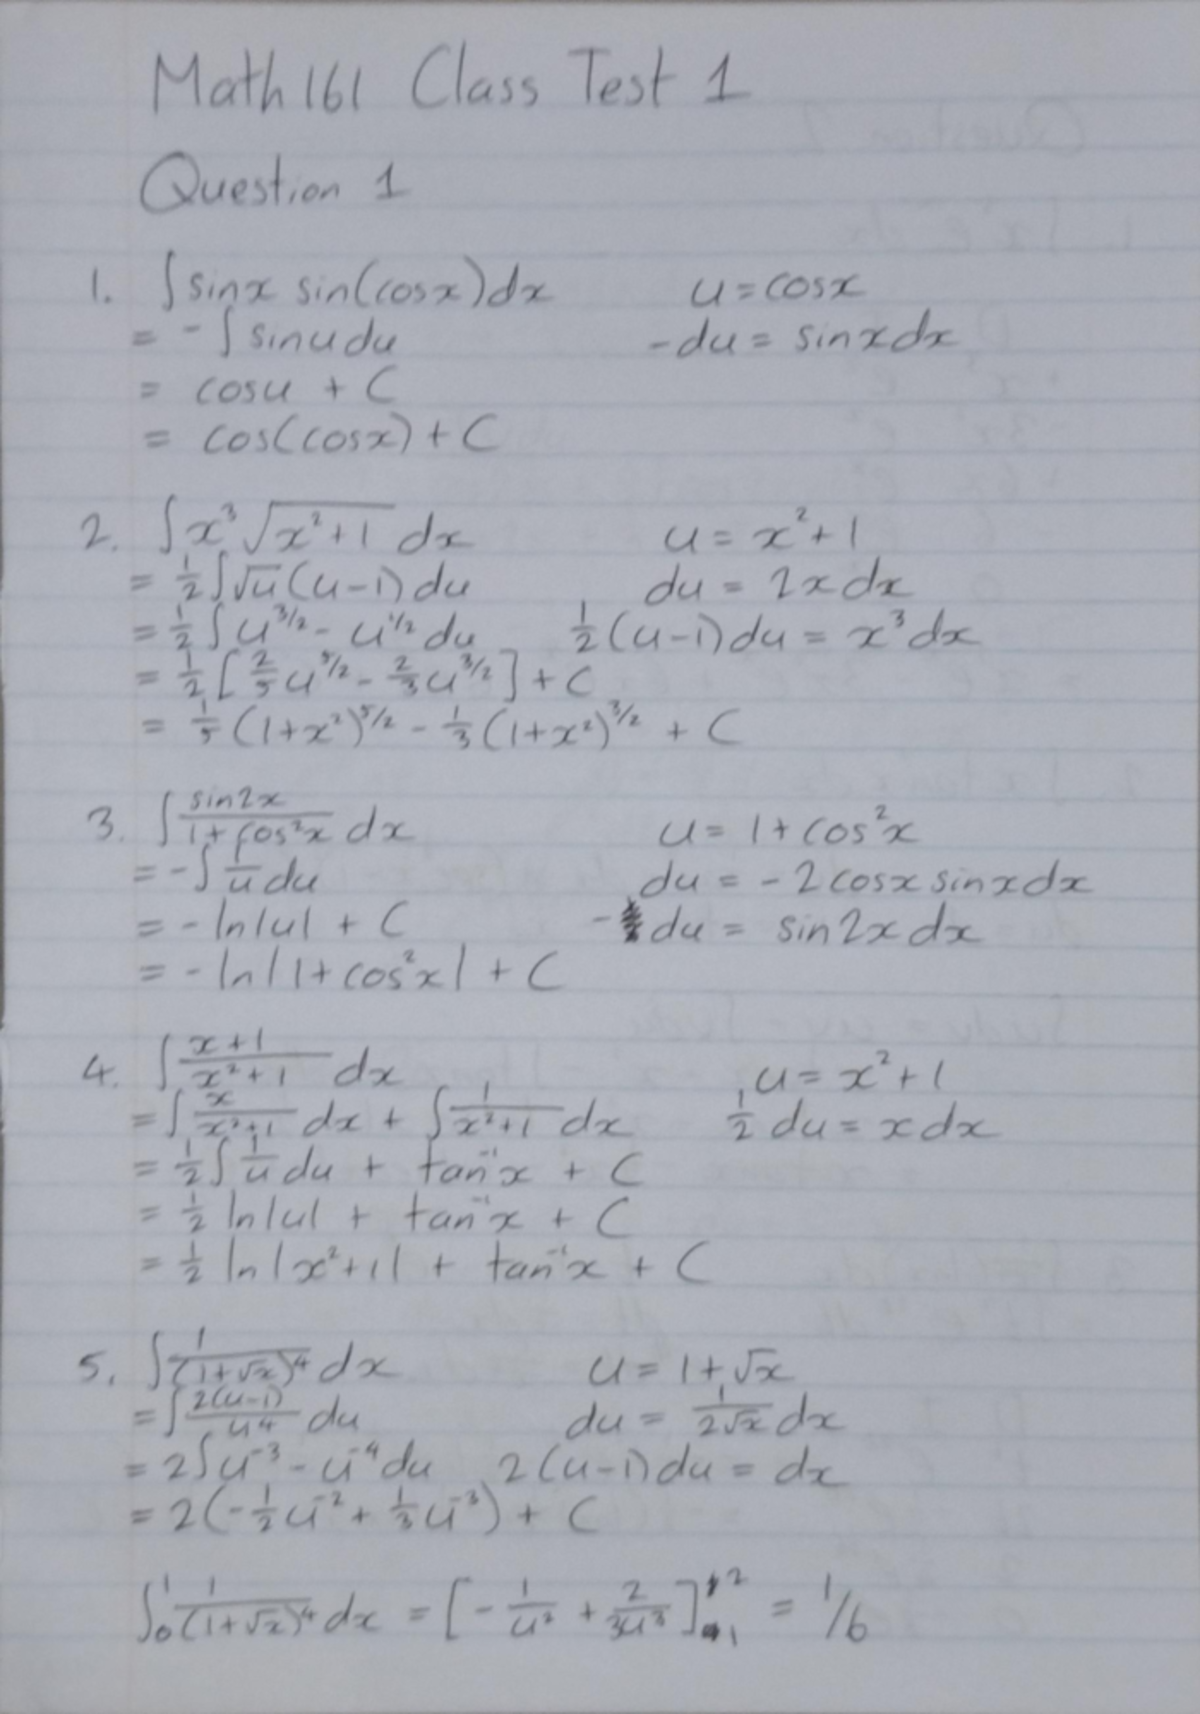 Math 161 Class Test 1
Question 1
1. ∫ sinx sin(cosx) dx    u = cosx
= - ∫ sinu du    -du = sinx dx
= cosu + C
= cos(cosx) + C
2. ∫ x³ √(x²+1) dx    u = x²+1
= 1/2 ∫ √u (u-1) du    du = 2x dx
= 1/2 ∫ u^(3/2) - u^(1/2) du    1/2 (u-1) du = x³ dx
= 1/2 [2/5 u^(5/2) - 2/3 u^(3/2)] + C
= 1/5 (1+x²)^(5/2) - 1/3 (1+x²)^(3/2) + C
3. ∫ sin2x/(1+cos²x) dx    u = 1+cos²x
= -∫ 1/u du    du = -2cosx sinx dx
= -ln|u| + C    - du = sin2x dx
= -ln|1+cos²x| + C
4. ∫ (x+1)/(x²+1) dx    u = x²+1
= ∫ x/(x²+1) dx + ∫ 1/(x²+1) dx    1/2 du = x dx
= 1/2 ∫ 1/u du + tan⁻¹x + C
= 1/2 ln|u| + tan⁻¹x + C
= 1/2 ln|x²+1| + tan⁻¹x + C
5. ∫ 1/(1+√x)⁴ dx    u = 1+√x
= ∫ 2(u-1)/u⁴ du    du = 1/(2√x) dx
= 2∫ u⁻³ - u⁻⁴ du    2(u-1) du = dx
= 2(-1/2 u⁻² + 1/3 u⁻³) + C
∫₀¹ 1/(1+√x)⁴ dx = [-1/u² + 2/(3u³)]₁² = 1/6